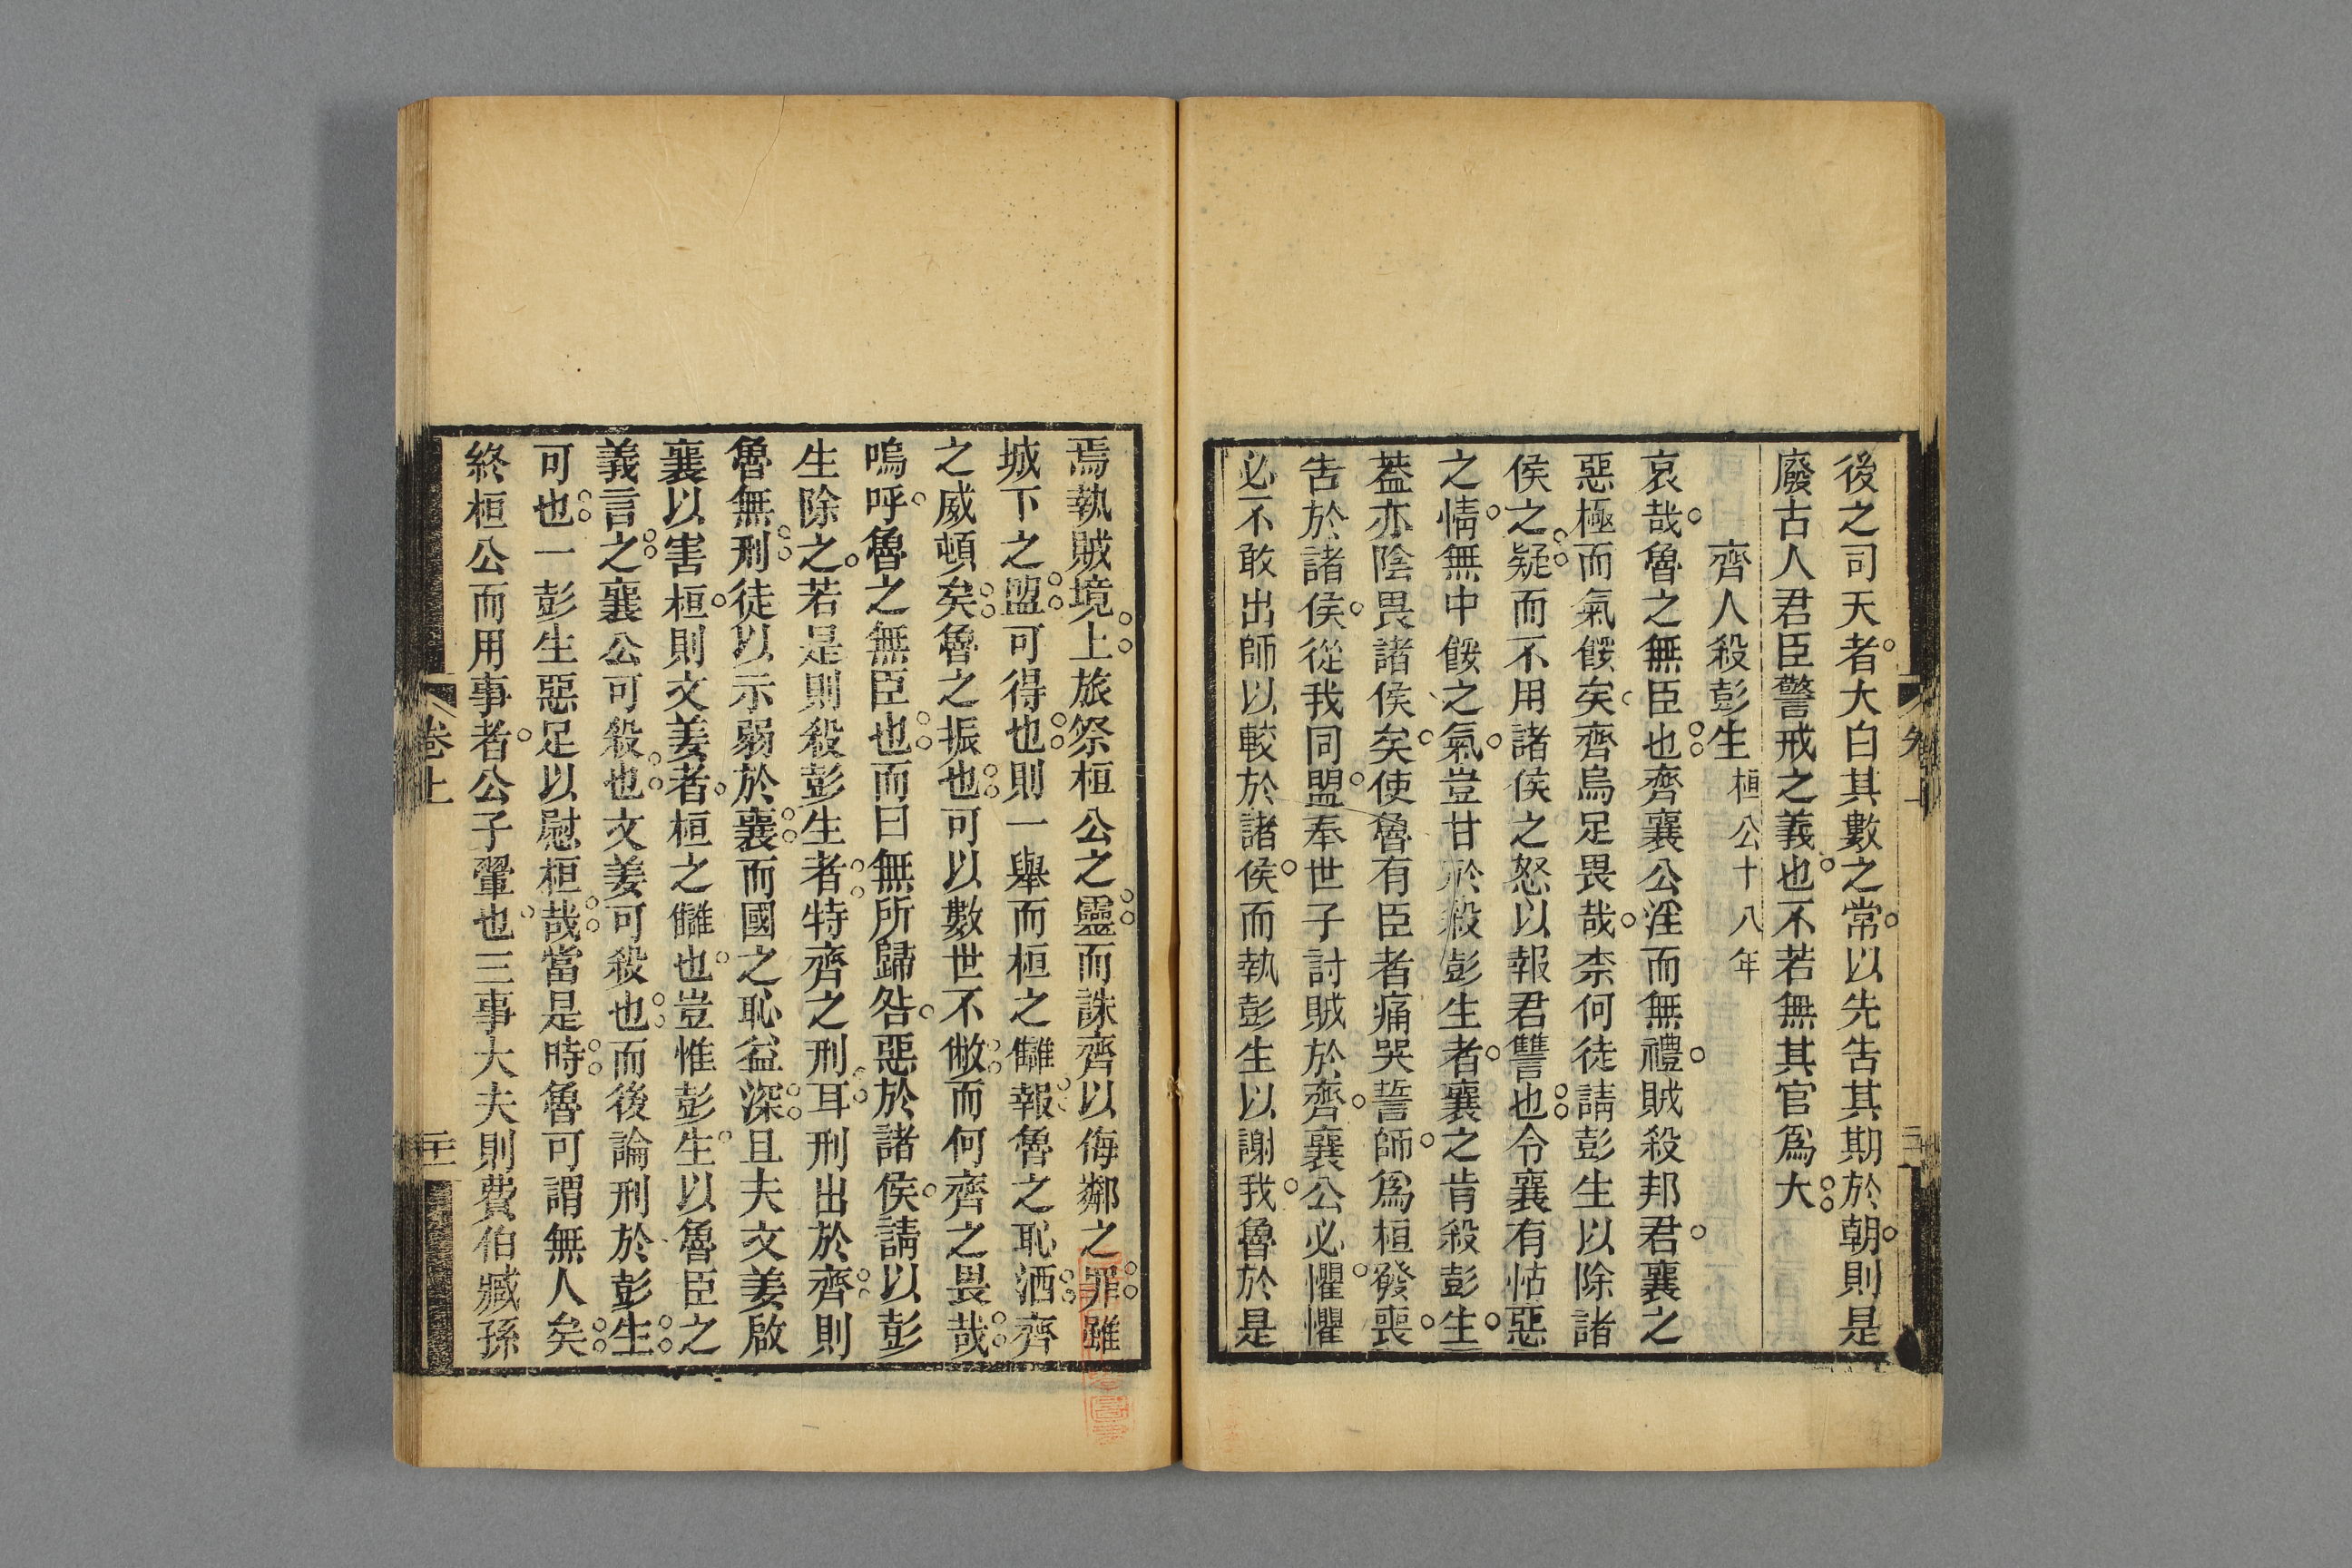 後之司天者大白其數之常以先告其期於朝則是
廢古人君臣警戒之義也不若無其官爲大
齊人殺彭生桓公十八年
哀哉魯之無臣也齊襄公淫而無禮賊殺邦君襄之
惡極而氣餒矣齊烏足畏哉柰何徒請彭生以除諸
侯之疑而不用諸侯之怒以報君讐也令襄有怙惡
之情無中餒之氣豈甘於殺彭生者襄之肯殺彭生
葢亦陰畏諸侯矣使魯有臣者痛哭誓師爲桓發喪
告於諸侯從我同盟奉世子討賊於齊襄公必懼懼
必不敢出師以較於諸侯而執彭生以謝我魯於是
焉執賊境上旅祭桓公之靈而誅齊以侮鄰之罪雖
城下之盟可得也則一舉而桓之讎報魯之恥洒齊
之威頓矣魯之振也可以數世不敝而何齊之畏哉
嗚呼魯之無臣也而曰無所歸咎惡於諸侯請以彭
生除之若是則殺彭生者特齊之刑耳刑出於齊則
魯無刑徒以示弱於襄而國之恥益深且夫文姜啟
襄以害桓則文姜者桓之讎也豈惟彭生以魯臣之
義言之襄公可殺也文姜可殺也而後論刑於彭生
可也一彭生惡足以慰桓哉當是時魯可謂無人矣
終桓公而用事者公子翬也三事大夫則費伯臧孫
卷上
二十一